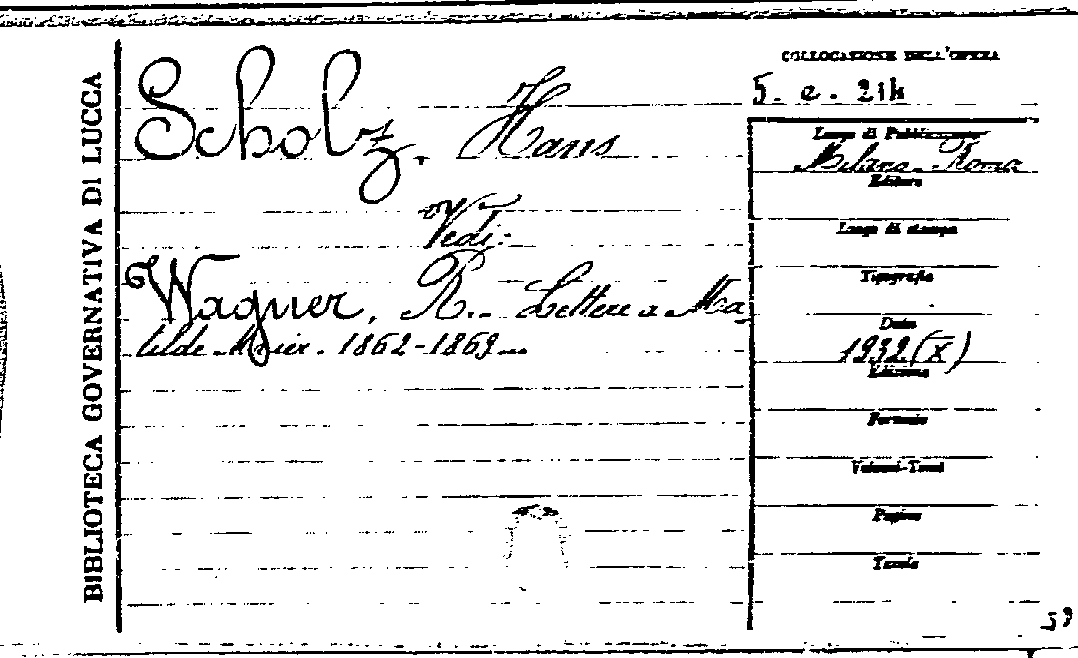 BIBLIOTECA GOVERNATIVA DI LUCCA
Scholz, Hans
Vedi:
Wagner, R. - Lettere a Ma
tilde Maier. 1862-1869...
COLLOCAZIONE DELL'OPERA
5. e. 21
Luogo di Pubblicazione
Milano - Roma
Editore
Luogo di stampa
Tipografia
Data
1932 (X)
Edizione
Formato
Volumi-Tomi
Pagine
Tavole